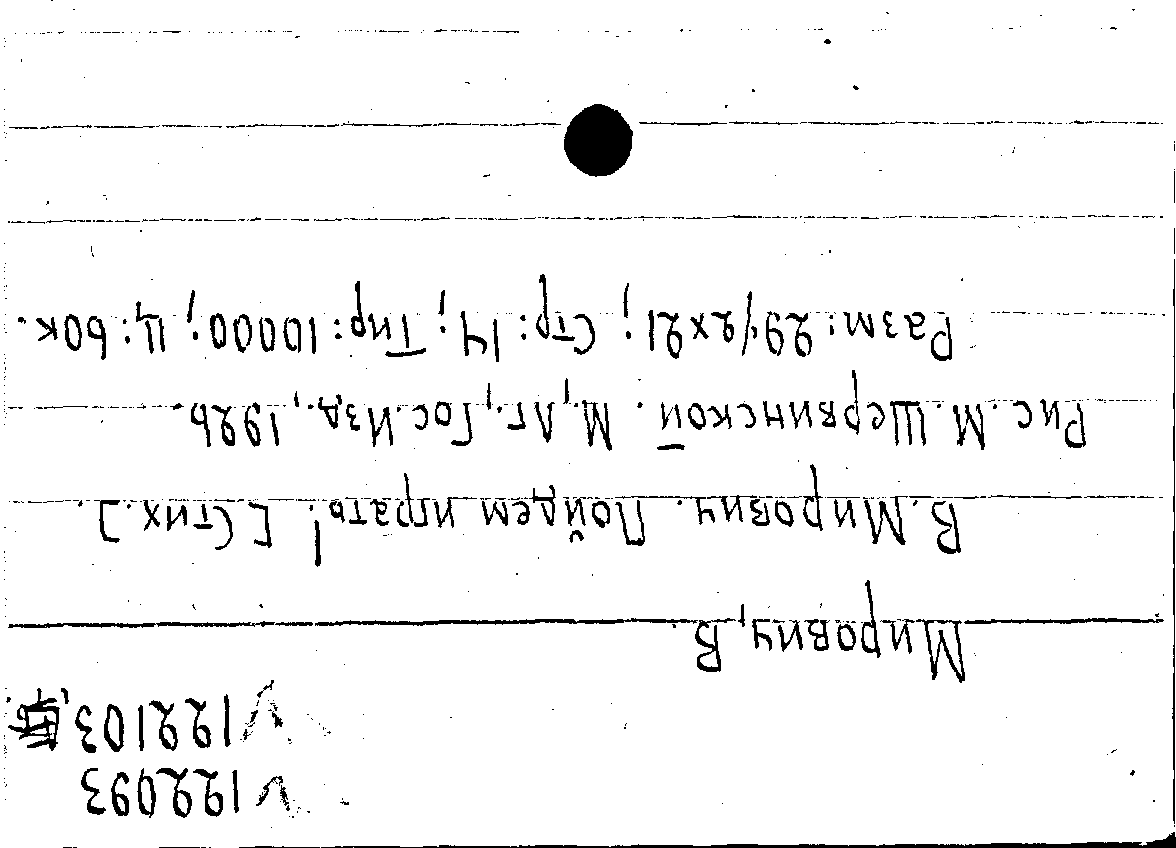 √ 122093
√ 122103,
Мирович, В.
В. Мирович. Пойдем играть! [Стих.].
Рис. М. Шервинской. М., Лг., Гос. Изд., 1926.
Разм: 29½ x 21; Стр: 14; Тир: 10000; Ц: 60к.